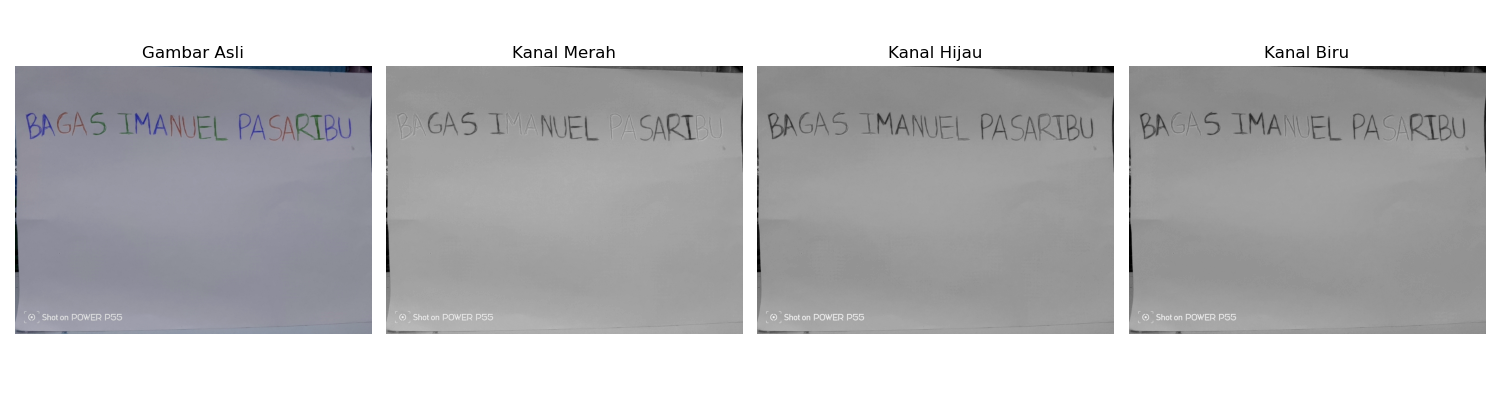 Gambar Asli
BAGAS IMANUEL PASARIBU
Shot on POWER P55
Kanal Merah
BAGAS IMANUEL PASARIBU
Shot on POWER P55
Kanal Hijau
BAGAS IMANUEL PASARIBU
Shot on POWER P55
Kanal Biru
BAGAS IMANUEL PASARIBU
Shot on POWER P55